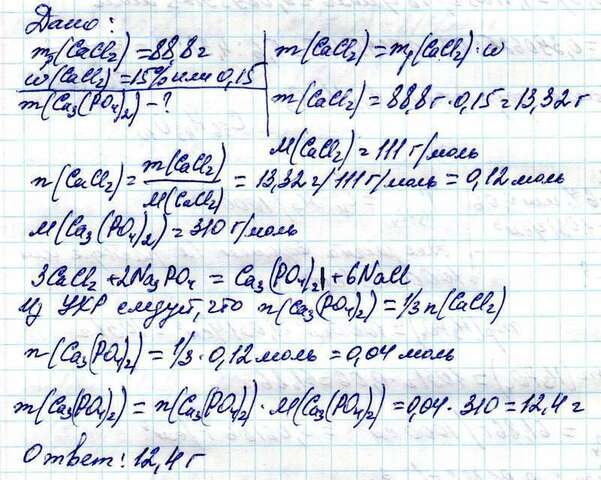 Дано:
m p(CaCl2) = 88,8 г
w(CaCl2) = 15% или 0,15
m(Ca3(PO4)2) - ?
m(CaCl2) = m p(CaCl2) · w
m(CaCl2) = 88,8 г · 0,15 = 13,32 г
M(CaCl2) = 111 г/моль
n(CaCl2) = m(CaCl2) / M(CaCl2) = 13,32 г / 111 г/моль = 0,12 моль
M(Ca3(PO4)2) = 310 г/моль
3CaCl2 + 2Na3PO4 = Ca3(PO4)2↓ + 6NaCl
Из УХР следует, что n(Ca3(PO4)2) = 1/3 n(CaCl2)
n(Ca3(PO4)2) = 1/3 · 0,12 моль = 0,04 моль
m(Ca3(PO4)2) = n(Ca3(PO4)2) · M(Ca3(PO4)2) = 0,04 · 310 = 12,4 г
Ответ: 12,4 г